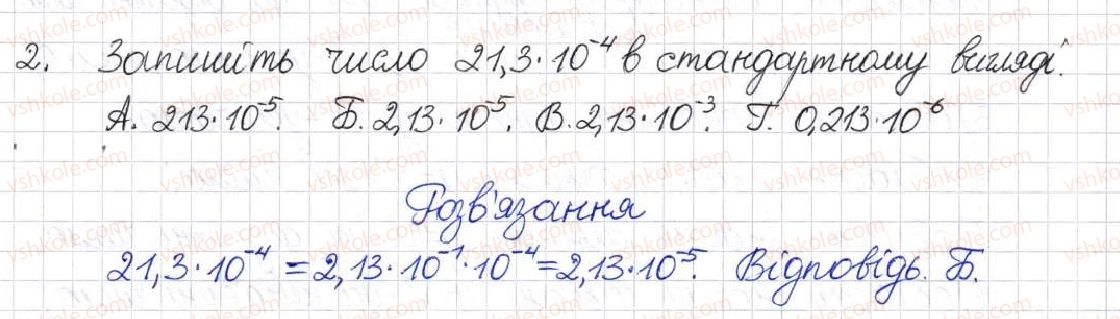 2. Запишіть число 21,3·10⁻⁴ в стандартному вигляді.
А. 213·10⁻⁵. Б. 2,13·10⁻⁵. В. 2,13·10⁻³. Г. 0,213·10⁻⁶
Розв'язання
21,3·10⁻⁴ = 2,13·10⁻¹·10⁻⁴ = 2,13·10⁻⁵. Відповідь. Б.